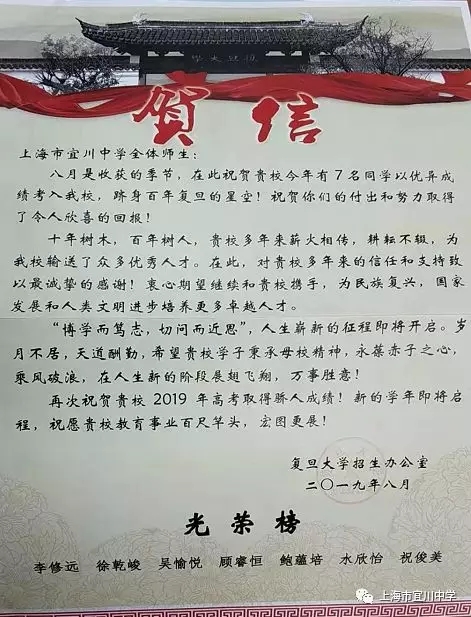 學大旦復
賀信
上海市宜川中学全体师生：
八月是收获的季节，在此祝贺贵校今年有7名同学以优异成
绩考入我校，跻身百年复旦的星空！祝贺你们的付出和努力取得
了令人欣喜的回报！
十年树木，百年树人，贵校多年来薪火相传，耕耘不辍，为
我校输送了众多优秀人才。在此，对贵校多年来的信任和支持致
以最诚挚的感谢！衷心期望继续和贵校携手，为民族复兴，国家
发展和人类文明进步培养更多卓越人才。
“博学而笃志，切问而近思”，人生崭新的征程即将开启。岁
月不居，天道酬勤，希望贵校学子秉承母校精神，永葆赤子之心，
乘风破浪，在人生新的阶段展翅飞翔，万事胜意！
再次祝贺贵校2019年高考取得骄人成绩！新的学年即将启
程，祝愿贵校教育事业百尺竿头，宏图更展！
复旦大学招生办公室
二〇一九年八月
光荣榜
李修远 徐乾峻 吴愉悦 顾睿恒 鲍蕴培 水欣怡 祝俊美
上海市宜川中学